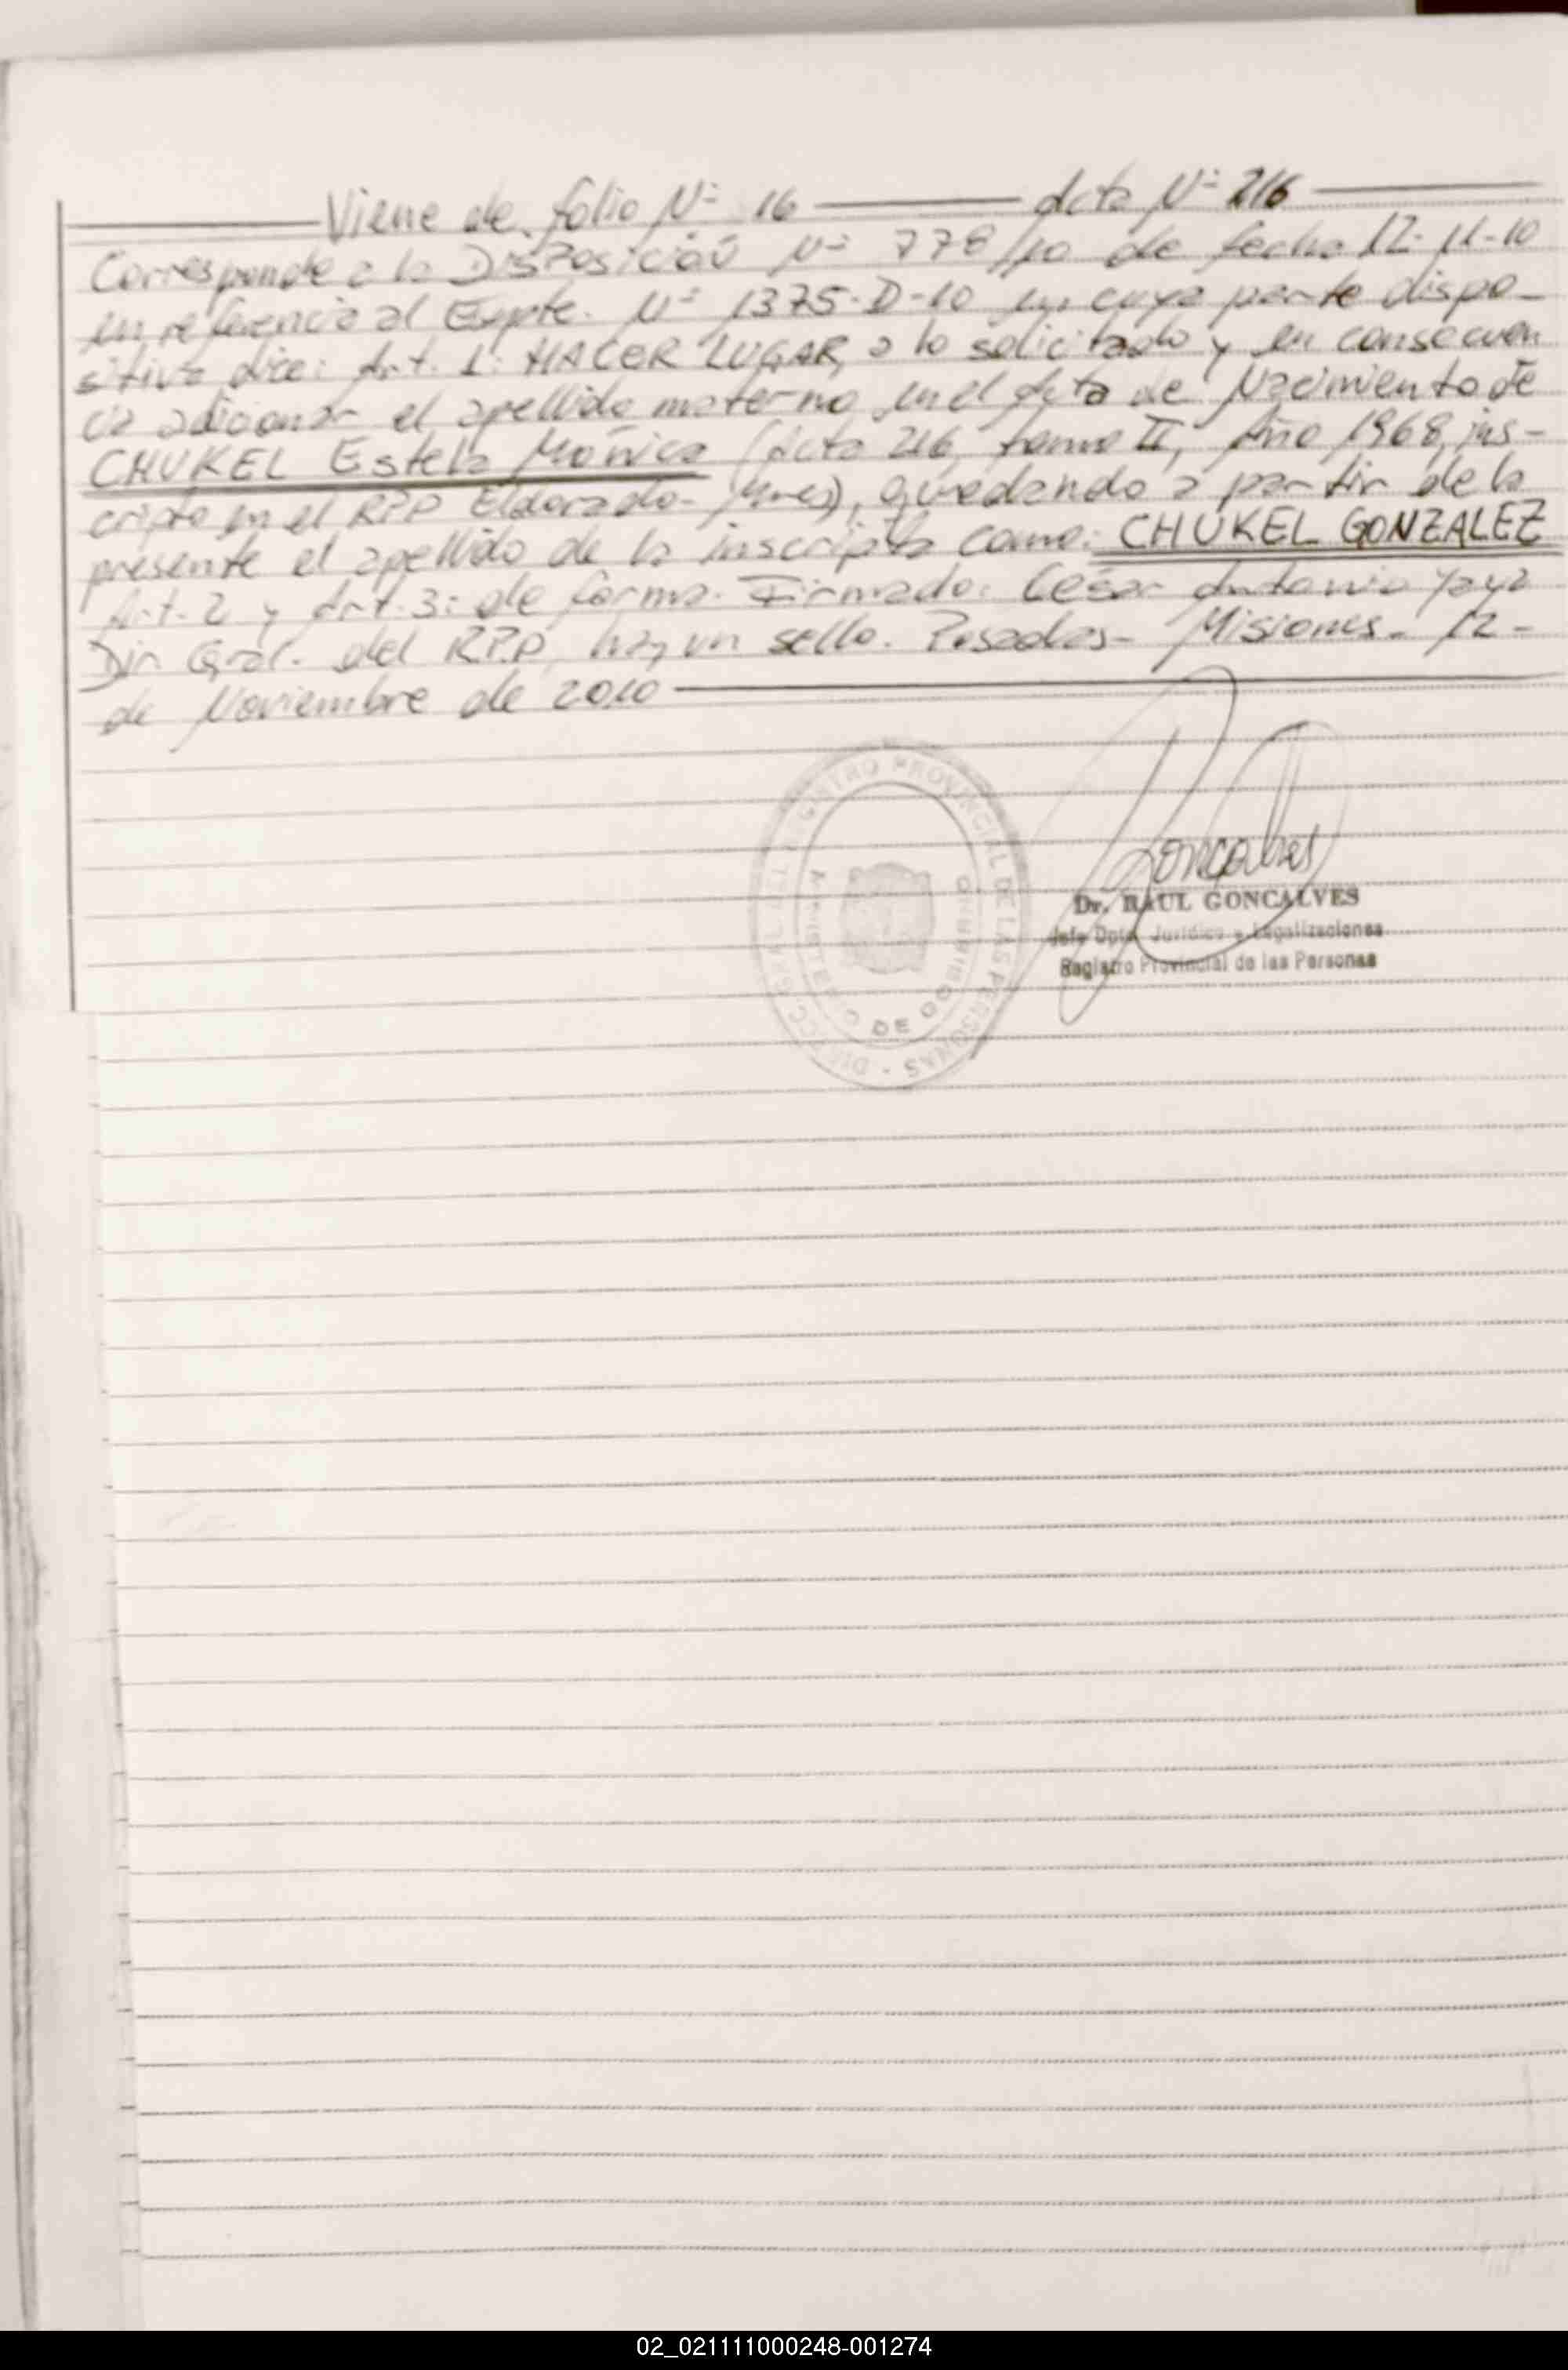 Viene de folio Nº 16 ——— Acta Nº 216
Corresponde a la Disposición Nº 778/10 de fecha 12-11-10
en referencia al Expte. Nº 1375-D-10 en cuya parte dispo-
sitiva dice: Art. 1: HACER LUGAR, a lo solicitado y en consecuen
cia adicionar el apellido materno en el Acta de Nacimiento de
CHUKEL Estela Mónica (Acta 216, tomo II, Año 1968, ins-
cripta en el RPP Eldorado- Mnes), quedando a partir de la
presente el apellido de la inscripta como: CHUKEL GONZALEZ
Art. 2 y Art. 3: de forma. Firmado: César Antonio Yaya
Dir. Gral. del R.P.P, hay un sello. Posadas- Misiones- 12-
de Noviembre de 2010
DIRECC GRAL DEL REGISTRO PROVINCIAL DE LAS PERSONAS
MINISTERIO DE GOBIERNO
Goncalves
Dr. RAUL GONCALVES
Jefe Dpto. Jurídico y Legalizaciones
Registro Provincial de las Personas
02_021111000248-001274